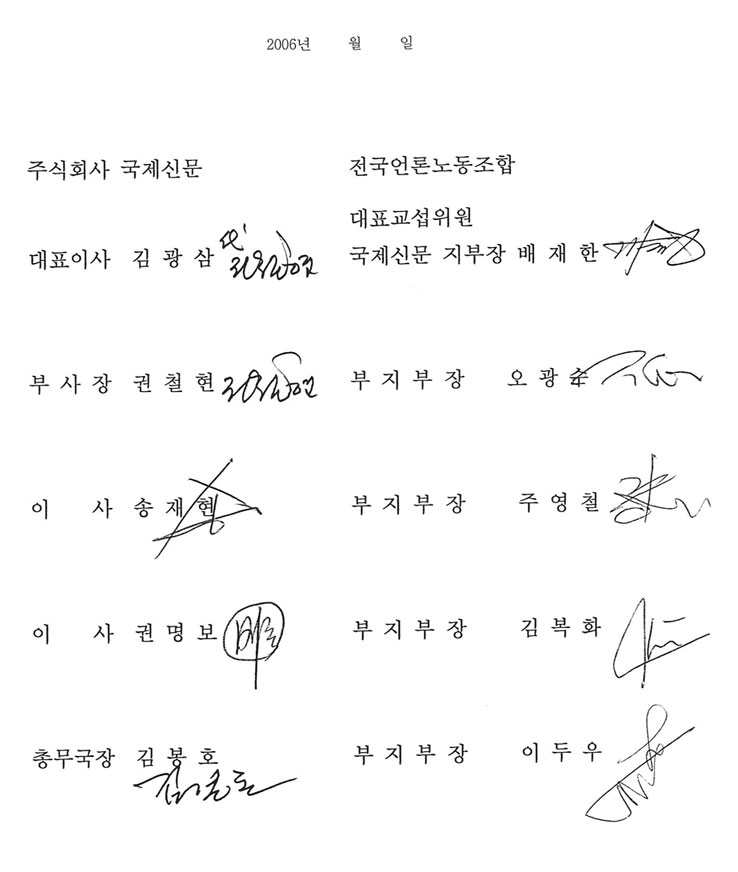 2006년 월 일
주식회사 국제신문
대표이사 김 광 삼
부 사 장 권 철 현
이 사 송 재 현
이 사 권 명 보
총무국장 김 봉 호
전국언론노동조합
대표교섭위원
국제신문 지부장 배 재 한
부 지 부 장 오 광 수
부 지 부 장 주 영 철
부 지 부 장 김 복 화
부 지 부 장 이 두 우